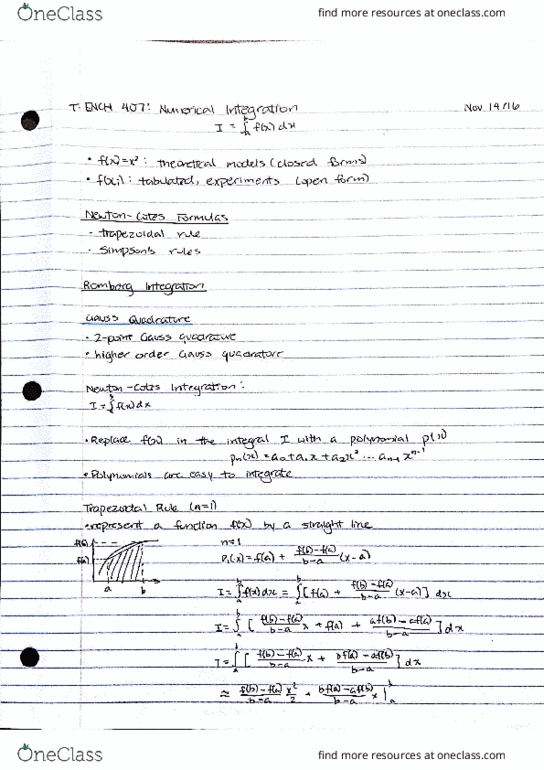 OneClass
find more resources at oneclass.com
T: ENCH 407: Numerical Integration Nov 14/16
I = ∫ₐᵇ f(x) dx
• f(x)=x² : theoretical models (closed forms)
• f(xi) : tabulated, experiments (open form)
Newton-Cotes Formulas
- trapezoidal rule
- Simpson's rules
Romberg Integration
Gauss Quadrature
• 2-point Gauss quadrature
• higher order Gauss quadrature
Newton-Cotes Integration:
I = ∫ₐᵇ f(x) dx
• Replace f(x) in the integral I with a polynomial p(x)
pn(x) = a0 + a1x + a2x² ... an-1 xⁿ⁻¹
• Polynomials are easy to integrate
Trapezoidal Rule (n=1)
• represent a function f(x) by a straight line
f(b)
f(a)
a b
n=1
P1(x) = f(a) + (f(b)-f(a))/(b-a) (x-a)
I = ∫ₐᵇ f(x) dx = ∫ₐᵇ [ f(a) + (f(b)-f(a))/(b-a) (x-a) ] dx
I = ∫ₐᵇ [ (f(b)-f(a))/(b-a) x + f(a) + (af(b)-af(a))/(b-a) ] dx
I = ∫ₐᵇ [ (f(b)-f(a))/(b-a) x + (bf(a)-af(b))/(b-a) ] dx
≈ (f(b)-f(a))/(b-a) x²/2 + (bf(a)-af(b))/(b-a) x |ₐᵇ
OneClass
find more resources at oneclass.com